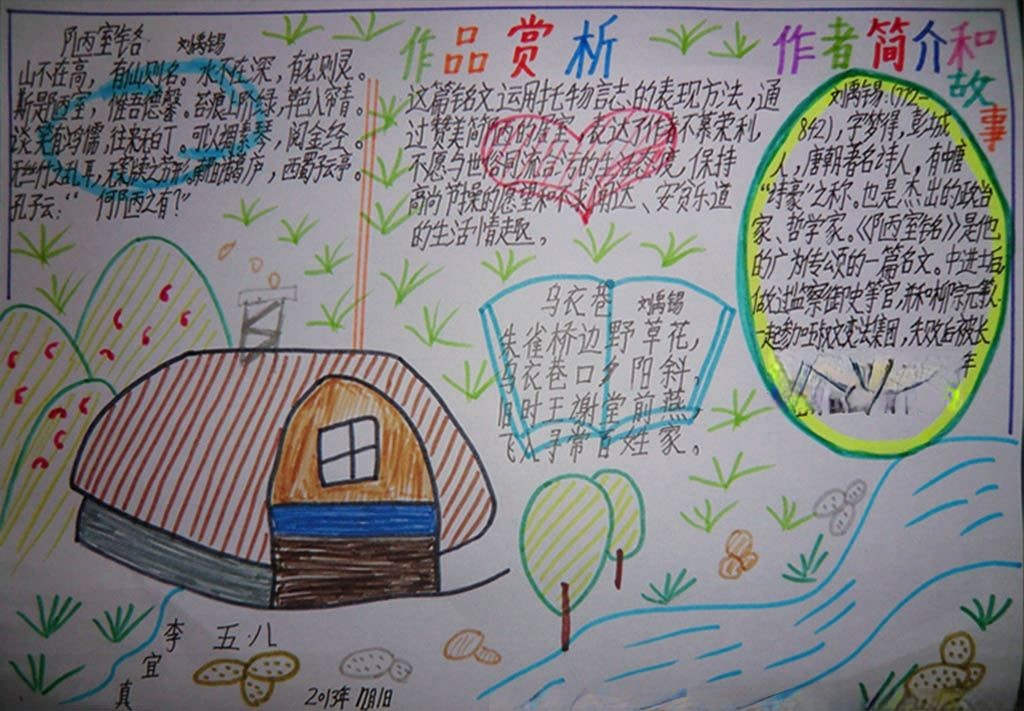 陋室铭 刘禹锡
山不在高，有仙则名。水不在深，有龙则灵。
斯是陋室，惟吾德馨。苔痕上阶绿，草色入帘青。
谈笑有鸿儒，往来无白丁。可以调素琴，阅金经。
无丝竹之乱耳，无案牍之劳形。南阳诸葛庐，西蜀子云亭。
孔子云：“何陋之有？”
作品赏析
这篇铭文运用托物言志的表现方法，通
过赞美简陋的居室，表达了作者不慕荣利，
不愿与世俗同流合污的生活态度，保持
高尚节操的愿望和不求闻达、安贫乐道
的生活情趣。
作者简介和故事
刘禹锡（772—
842），字梦得，彭城
人，唐朝著名诗人，有中唐
“诗豪”之称。也是杰出的政治
家、哲学家。《陋室铭》是他
的广为传颂的一篇名文。中进士后，
做过监察御史等官，并和柳宗元教
一起参加王叔文变法集团，失败后被长
年
乌衣巷 刘禹锡
朱雀桥边野草花，
乌衣巷口夕阳斜，
旧时王谢堂前燕，
飞入寻常百姓家。
五.八
李宜真
2013年11月1日